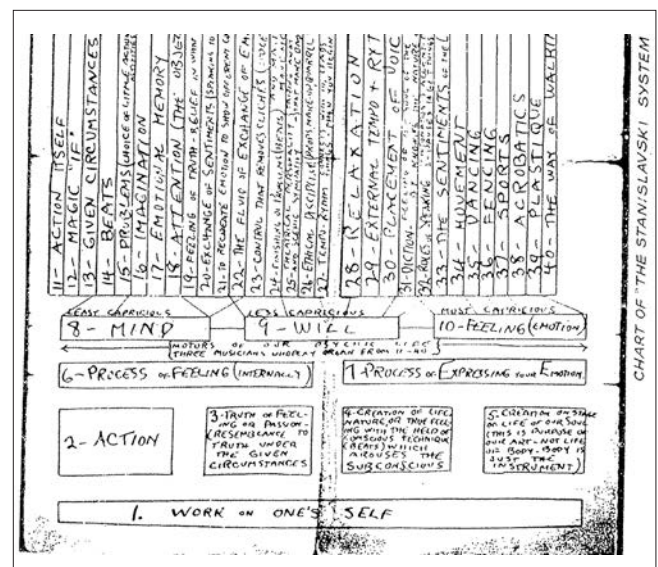 CHART OF "THE STANISLAVSKI SYSTEM
11- ACTION ITSELF
12- MAGIC "IF"
13- GIVEN CIRCUMSTANCES
14- BEATS
15- PROBLEMS (CHOICE OF LITTLE ACTION
16- IMAGINATION
17- EMOTIONAL MEMORY
18- ATTENTION (THE OBJE
19- FEELING OF TRUTH-BELIEF IN WHAT
20- EXCHANGE OF SENTIMENTS (SPEAKING TO
21- TO RELOCATE EMOTION TO SHOW DIFFERENT
22- THE FLUID OF EXCHANGE OF EM
23- CONTROL THAT REMOVES CLICHES
24- FINISHING OF
25- THEATRICAL PERSONALITY
AND SCENIC
26- ETHICAL DISCIPLINE
27- TEMPO-RYTHM
28- RELAXATION
29- EXTERNAL TEMPO + RYT
30- PLACEMENT OF VOIC
31- DICTION- FEELING OF THE
32- RULES OF SPEAKING
33- THE SENTIMENTS OF THE
34- MOVEMENT
35- DANCING
36- FENCING
37- SPORTS
38- ACROBATICS
39- PLASTIQUE
40- THE WAY OF WALKIN
LEAST CAPRICIOUS
LESS CAPRICIOUS
MOST CAPRICIOUS
8- MIND
9- WILL
10- FEELING (EMOTION)
MOTORS OF OUR PSYCHIC LIFE
(THREE MUSICIANS WHO PLAY ORGAN FROM 11-40)
6- PROCESS OF FEELING (INTERNALLY)
7- PROCESS OF EXPRESSING YOUR EMOTION
2- ACTION
3- TRUTH OF FEEL-
ING OR PASSION-
(RESEMBLANCE TO
TRUTH UNDER
THE GIVEN
CIRCUMSTANCES
4- CREATION OF LIFE,
NATURE, OR TRUE FEEL-
ING WITH THE HELP OF
CONSCIOUS TECHNIQUE
(BEATS) WHICH
AROUSES THE
SUBCONSCIOUS
5- CREATION ON STAGE
OF LIFE OF OUR SOUL
(THIS IS PURPOSE OF
OUR ART- NOT LIFE
OF BODY- BODY IS
JUST THE
INSTRUMENT)
1. WORK ON ONE'S SELF